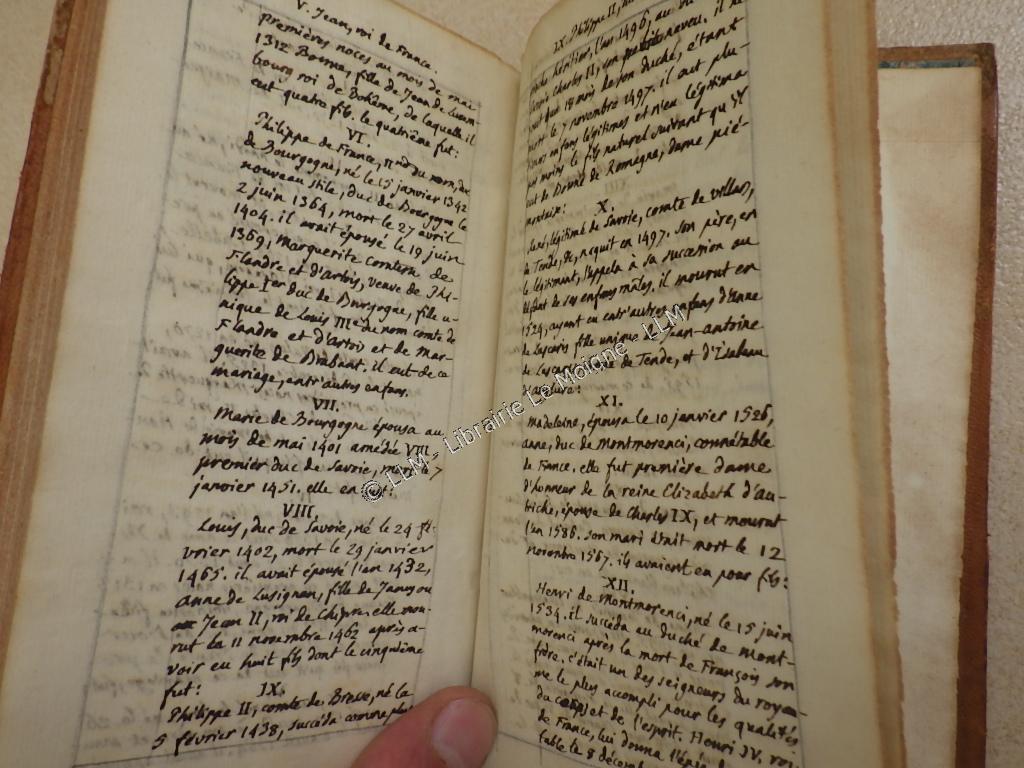 V. Jean, roi de France.
premières noces au mois de mai
1312 Bonne, fille de Jean de Luxem-
bourg roi de Bohème, de laquelle il
eut quatre fils. le quatrième fut:
VI.
Philippe de France, II.e du nom, duc
de Bourgogne, né le 15 janvier 1342
nouveau stile, duc de Bourgogne le
2 juin 1364, mort le 27 avril
1404. il avait épousé le 19 juin
1369, Marguerite comtesse de
Flandre et d'artois, veuve de Phi-
lippe I.er duc de Bourgogne, fille u-
nique de Louis III.e du nom comte de
Flandre et d'artois et de mar-
guerite de Brabant. il eut de ce
mariage, entr'autres enfans.
VII.
Marie de Bourgogne épousa au
mois de mai 1401 amédée VIII
premier duc de Savoie, mort le 7
janvier 1451. elle en eut:
VIII.
Louis, duc de Savoie, né le 24 fé-
vrier 1402, mort le 29 janvier
1465. il avait épousé l'an 1432,
anne de Lusignan, fille de Janus ou
Jean II, roi de Chipre. elle mou-
rut le 11 novembre 1462 après a-
voir eu huit fils dont le cinquième
fut:
IX.
Philippe II, comte de Bresse, né le
5 février 1438, succéda comme plus
IX. Philippe II,
proche héritier, l'an 1496, au
Charles II, son petit neveu. il ne
que 18 mois de son duché, étant
mort le 7 novembre 1497. il eut plu-
sieurs enfans légitimes et n'eu. légitima
pas moins le fils naturel suivant qu'il
eut de Bonne de Romagne, dame pié-
montaise:
X.
René, légitimé de Savoie, comte de villars,
de Tende, &c, naquit en 1497. son père, en
le légitimant, l'appela à sa succession au
défaut de ses enfans mâles. il mourut en
1524, ayant eu entr'autres enfans d'Anne
de Lascaris fille unique de Jean-antoine
de Lascaris comte de Tende, et d'Isabeau
d'anglure:
XI.
Madeleine, épousa le 10 janvier 1526,
anne, duc de montmorenci, connétable
de France. elle fut première dame
d'honneur de la reine Elizabeth d'au-
triche, épouse de Charles IX, et mourut
l'an 1586. son mari était mort le 12
novembre 1567. ils avaient eu pour fils:
XII.
Henri de Montmorenci, né le 15 juin
1534. il succéda au duché de Mont-
morenci après la mort de François son
frère. c'était un des seigneurs du royau-
me le plus accompli pour les qualités
du corps et de l'esprit. Henri IV, roi
de France, lui donna l'épée
table le 8 décemb
© LLM - Librairie Le Moigne - LLM